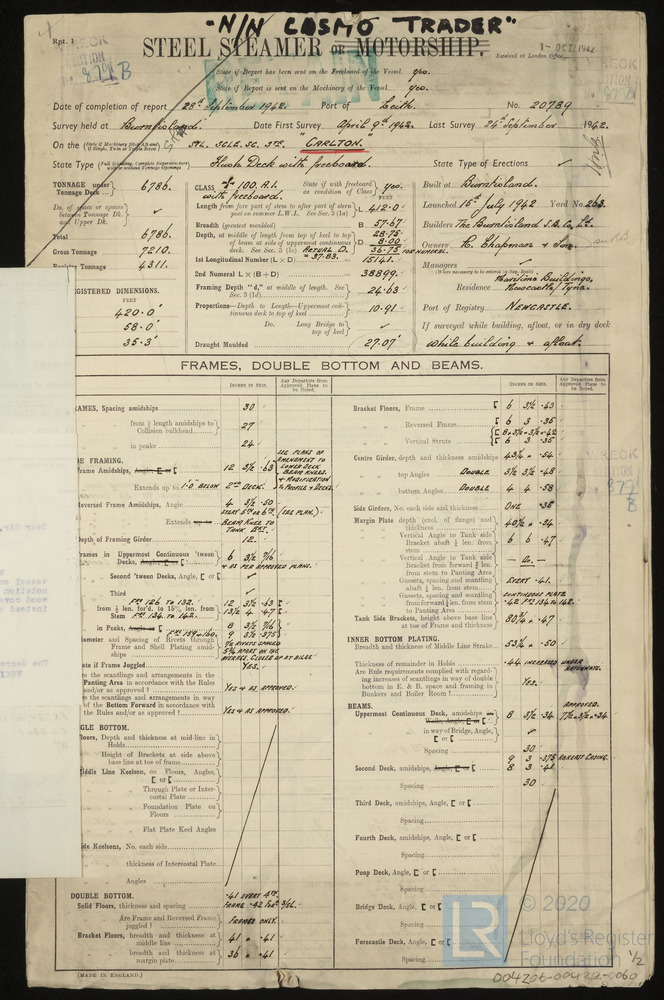 "N/N COSMO TRADER"
Rpt. 1
STEEL STEAMER OR MOTORSHIP.
Received at London Office
State if Report has been sent on the Freeboard of the Vessel yes.
State if Report is sent on the Machinery of the Vessel yes.
Date of completion of report 28th September 1942. Port of Leith. No. 20789
Survey held at Burntisland. Date First Survey April 9th 1942. Last Survey 24th September 1942.
On the "CARLTON."
State Type Flush Deck with freeboard. State Type of Erections ✓
TONNAGE under Tonnage Deck 6786.
Do. of space or spaces between Tonnage Dk. and Upper Dk. ✓
Total 6786.
Gross Tonnage 7210.
Register Tonnage 4311.
REGISTERED DIMENSIONS.
FEET
420.0'
58.0'
35.3'
CLASS 100.A.1. with freeboard. State if with freeboard as condition of Class yes.
Length from fore part of stem to after part of stern post on summer L.W.L. See Sec. 3 (1a) L 412.0
Breadth (greatest moulded) B 57.67
1st Longitudinal Number (L × D) 15141.
2nd Numeral L × (B + D) 38899.
Framing Depth "d," at middle of length. See Sec. 3 (1d) 24.63
Proportions—Depth to Length—Uppermost continuous deck to top of keel 10.91
Do. Long Bridge to top of keel ✓
Draught Moulded 27.07'
Built at Burntisland.
Launched 15th July 1942 Yard No. 263.
Builders The Burntisland S.B. Co. Ltd.
Owners R. Chapman & Son.
Managers ✓
(Where necessary to be entered in Reg. Book)
Residence Maritime Buildings, Newcastle/Tyne.
Port of Registry NEWCASTLE.
If surveyed while building, afloat, or in dry dock
while building & afloat.
FRAMES, DOUBLE BOTTOM AND BEAMS.
INCHES IN SHIP.
Any Departure from Approved Plans to be Noted.
INCHES IN SHIP.
Any Departure from Approved Plans to be Noted.
FRAMES, Spacing amidships 30
from length amidships to Collision bulkhead 27
in peaks 24
SEE PLANS OF AMENDMENT TO LOWER DECK BEAM KNEES. & MODIFICATION TO PROFILE & DECKS.
FRAMING.
Frame Amidships, Angle, [ or [ 12 3½ .63
Extends up to 1'-0" BELOW 2ND DECK.
Reversed Frame Amidships, Angle 4 3½ .50
(SEE PLAN.)
Extends BEAM KNEE TO TANK
Depth of Framing Girder 12.
Frames in Uppermost Continuous 'tween Decks, Angle, [ or [ 6 3½
& AS PER APPROVED PLANS.
Second 'tween Decks, Angle, [ or [ ✓
Third
FRS 126 TO 132.
from length for'd. to 15% len. from Stem FRS 134 TO 142. 12 3½ .63
in Peaks, Angle or [ FRS 159-160.
Diameter and Spacing of Rivets through Frame and Shell Plating amidships
State if Frame Joggled YES.
Are the scantlings and arrangements in the Panting Area in accordance with the Rules and/or as approved? YES & AS APPROVED.
Are the scantlings and arrangements in way of the Bottom Forward in accordance with the Rules and/or as approved? YES & AS APPROVED.
SINGLE BOTTOM.
Floors, Depth and thickness at mid-line in Holds
Height of Brackets at side above base line at toe of frame
Middle Line Keelson, on Floors, Angles, [ or [
Through Plate or Intercostal Plate
Foundation Plate on Floors
Flat Plate Keel Angles
Side Keelsons, No. each side
thickness of Intercostal Plate
Angles
DOUBLE BOTTOM.
Solid Floors, thickness and spacing .41 EVERY 4TH FRAME
Are Frame and Reversed Frame joggled? FRAMES ONLY.
Bracket Floors, breadth and thickness at middle line 41 .41
breadth and thickness at margin plate 36 .41
Bracket Floors, Frame [ 6 3½ .43
Reversed Frame [ 6 3 .35
Vertical Struts [ 6 3 .35
Centre Girder, depth and thickness amidships 43½ .54
top Angles DOUBLE 3½ 3½ .48
bottom Angles DOUBLE 4 4 .58
Side Girders, No. each side and thickness ONE .36
Margin Plate depth (excl. of flange) and thickness 40½ .54
Vertical Angle to Tank side Bracket abaft ¼ len. from stem 6 6 .47
Vertical Angle to Tank side Bracket from forward ¼ len. from stem to Panting Area — Do. —
Gussets, spacing and scantling abaft ¼ len. from stem EVERY .41.
Gussets, spacing and scantling from forward ¼ len. from stem to Panting Area CONTINUOUS PLATE .42 FRS 134 TO 142.
Tank Side Brackets, height above base line at toe of Frame and thickness 80¼ .47
INNER BOTTOM PLATING.
Breadth and thickness of Middle Line Strake 53½ .50
Thickness of remainder in Holds .44 INCREASED UNDER HATCHWAYS.
Are Rule requirements complied with regarding increases of scantlings in way of double bottom in E. & B. space and framing in Bunkers and Boiler Room? Yes.
BEAMS.
Uppermost Continuous Deck, amidships 8 3½ .34
APPROVED. 7½ × 3½ × .34
in way of Bridge, Angle, [ or [ ✓
Spacing 30
9 3 .375 ABREAST CASING.
Second Deck, amidships, Angle, [ or [ 8 3
Spacing 30
Third Deck, amidships, Angle, [ or [
Spacing
Fourth Deck, amidships, Angle, [ or [
Spacing
Poop Deck, Angle, [ or [
Spacing
Bridge Deck, Angle, [ or [
Spacing
Forecastle Deck, Angle, [ or [
Spacing
(MADE IN ENGLAND.)
LR
© 2020
Lloyd's Register
Foundation
½
004206-004212-0060